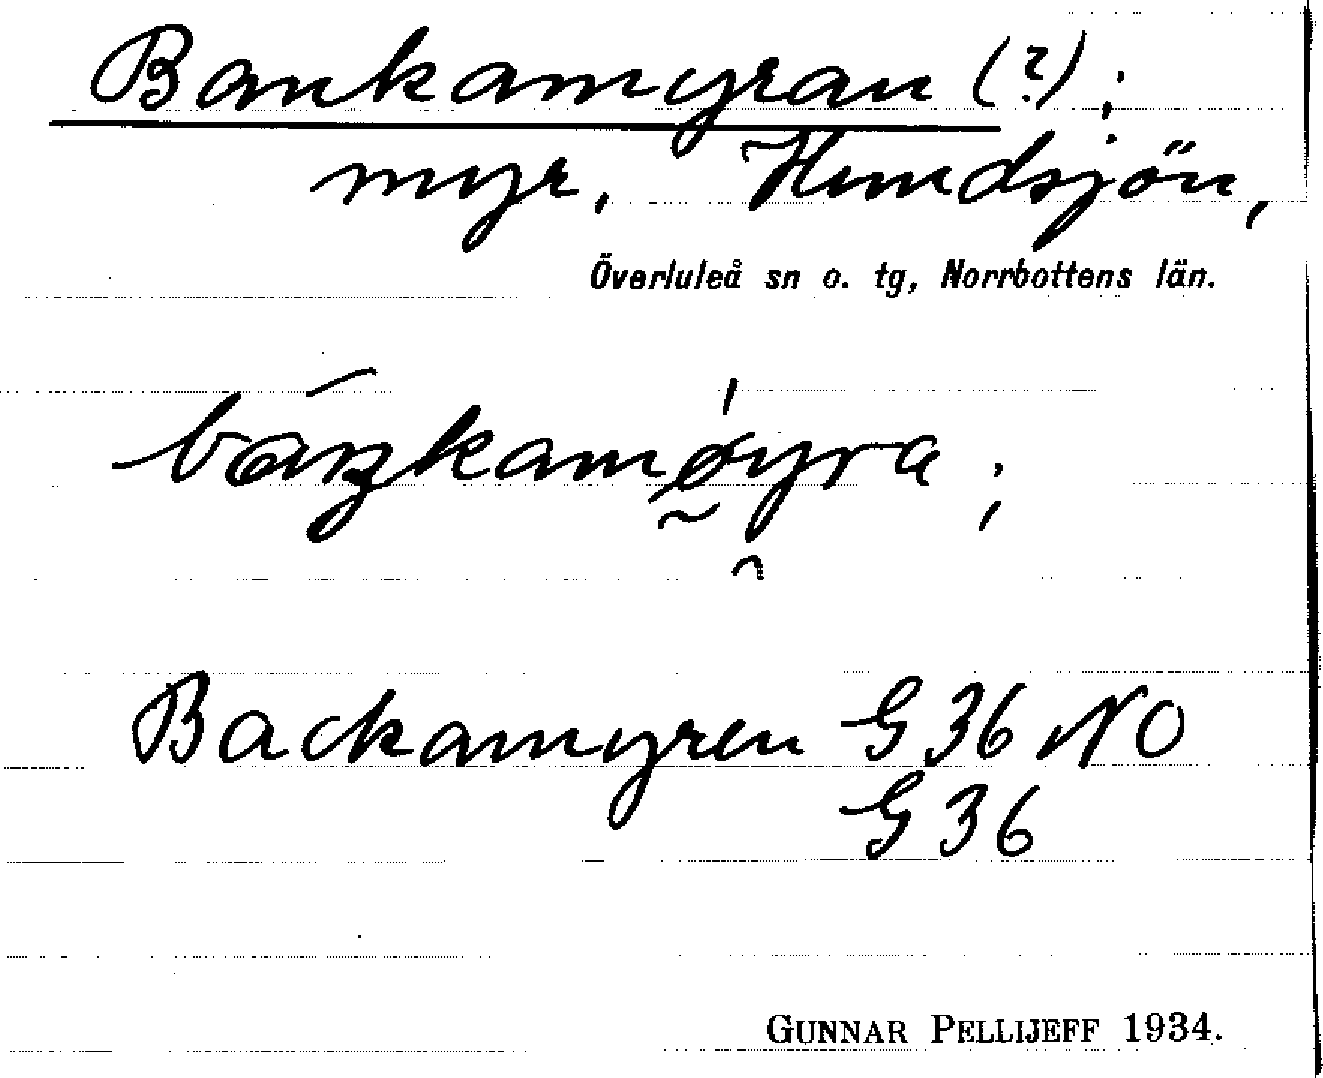 Bankamyran (?);
myr, Hundsjön,
Överluleå sn o. tg, Norrbottens län.
Backamyren G 36 NO
G 36
GUNNAR PELLIJEFF 1934.